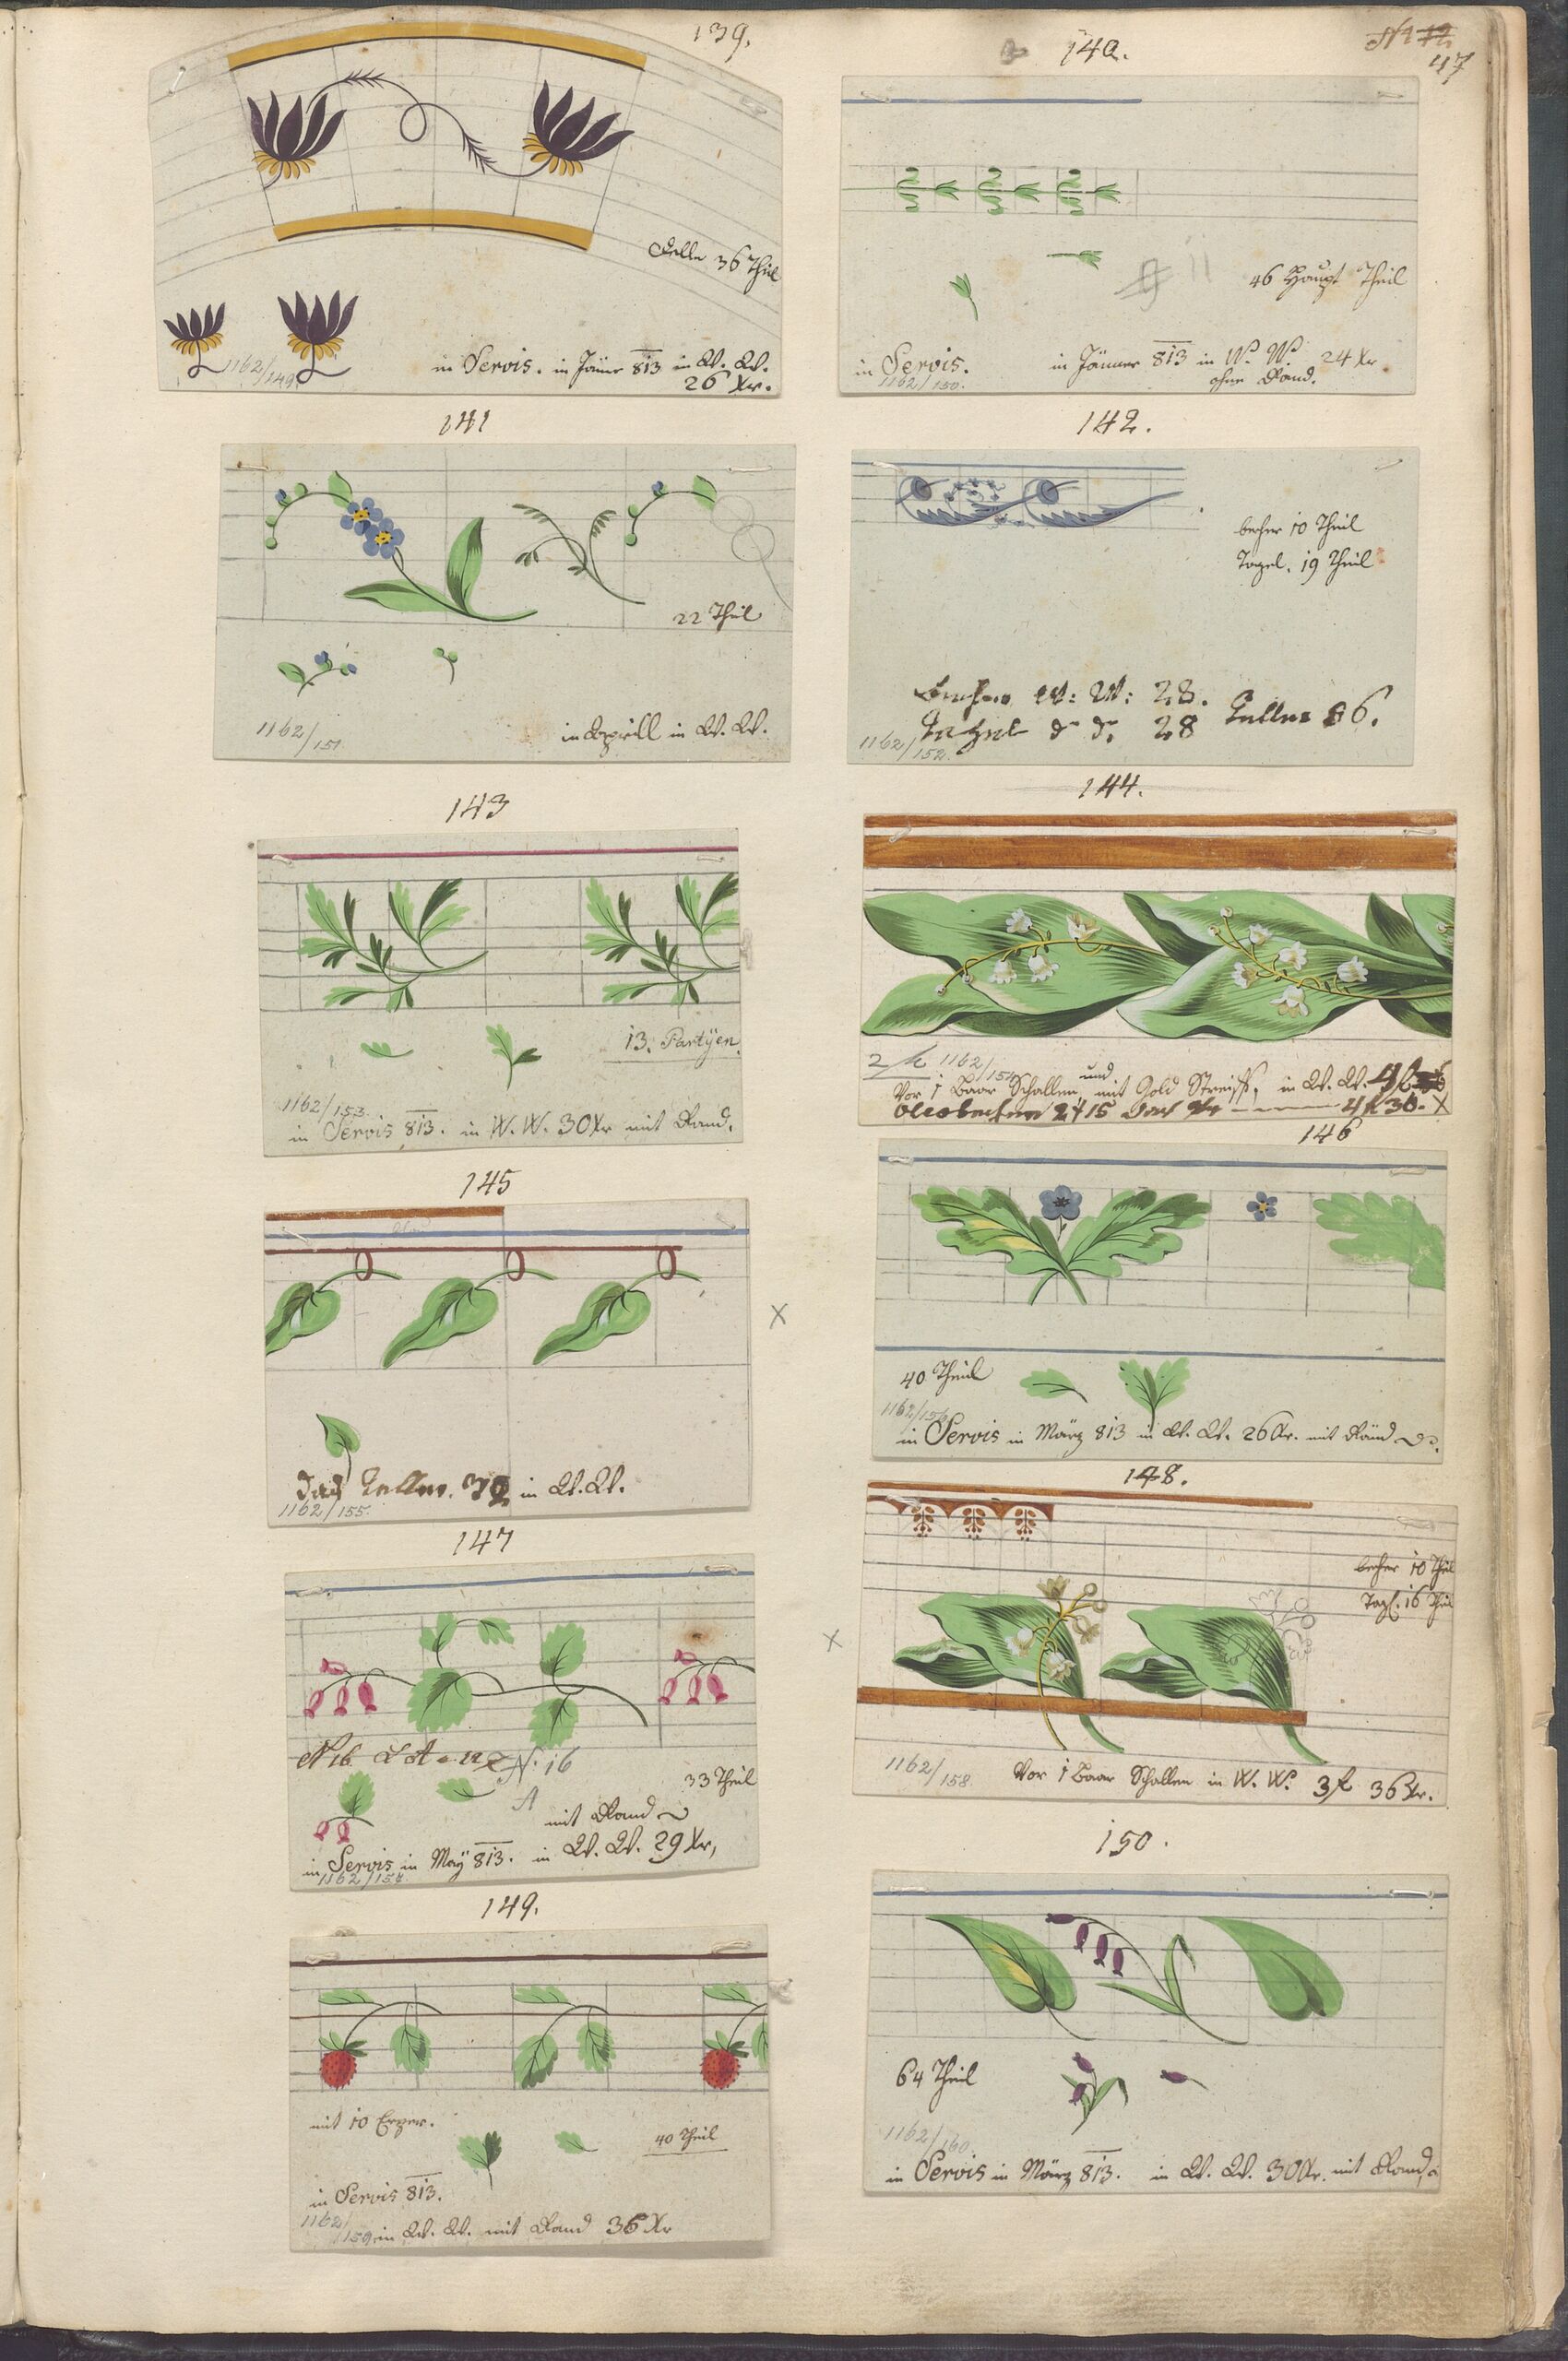 47
139.
36 Theil
in Servis. in Jäner 813 in W. W.
26 Xr.
1162/149
140.
46 Haupt Theil
in Servis. in Jänner 813 in W. W. 24 Xr.
ohne Rand.
1162/150.
141
22 Theil
in Aprill in W. W.
1162/151
142.
becher 10 Theil
19 Theil
W: W: 28.
28 Teller 86.
1162/152.
143
13. Partÿen.
1162/153.
in Servis 813. in W. W. 30 Xr mit Rand.
144.
1162/154
und
Vor 1 Paar Schallen mit Gold Streiff, in W. W.
145
das Teller in W. W.
1162/155.
146
40 Theil
1162/156
in Servis in März 813 in W. W. 26 Xr. mit Rand
147
N. 16
A
33 Theil
mit Rand
in Servis in Maÿ 813. in W. W. 29 Xr,
1162/157.
148.
becher 10 Theil
16 Theil
1162/158
Vor 1 Paar Schallen in W. W. 3 f 36 Xr.
149.
mit 10
40 Theil
in Servis 813.
1162/159 in W. W. mit Rand 36 Xr
150.
64 Theil
1162/160.
in Servis in März 813. in W. W. 30 Xr. mit Rand